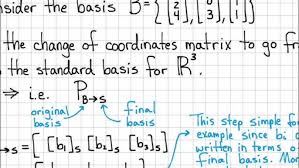 nsider the basis B = { [2 4], [0 3], [1 1]
the change of coordinates matrix to go fr
the standard basis for ℝ³.
⇒ i.e. P B→S
original basis final basis
→S = [ [b₁]s [b₂]s [b₃]s ]
This step simple fo
example since bi a
written in terms o
final basis. Mor